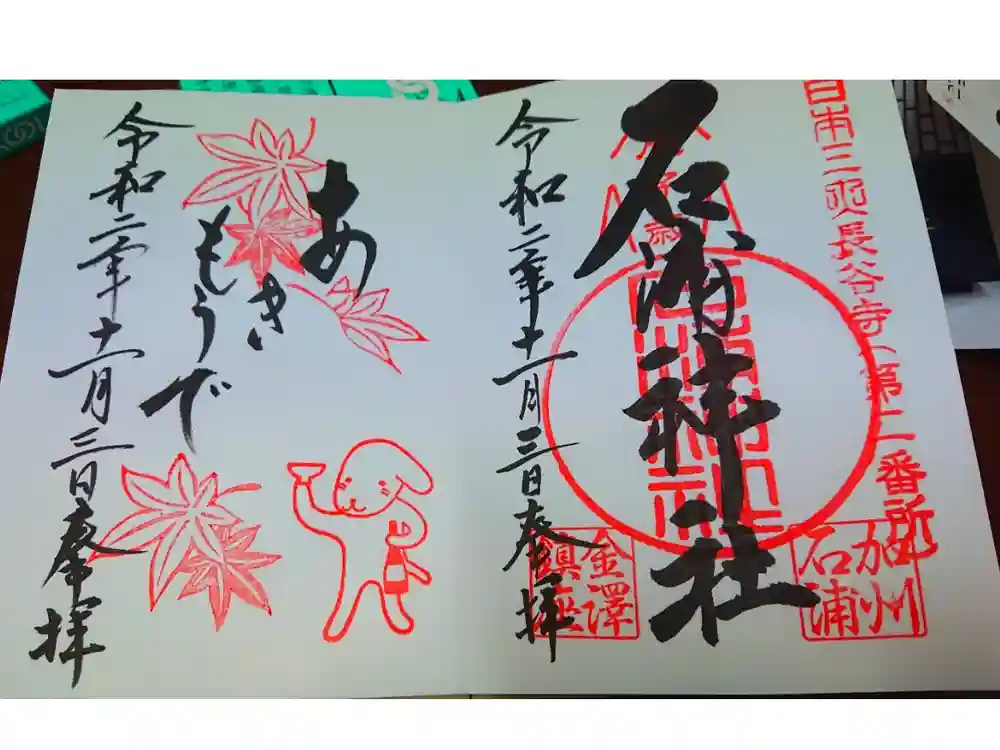 日本三所長谷寺(第二番所
石浦神社
加州
石浦
金澤
鎮座
令和二年十一月三日奉拝
あき
もうで
令和二年十一月三日奉拝